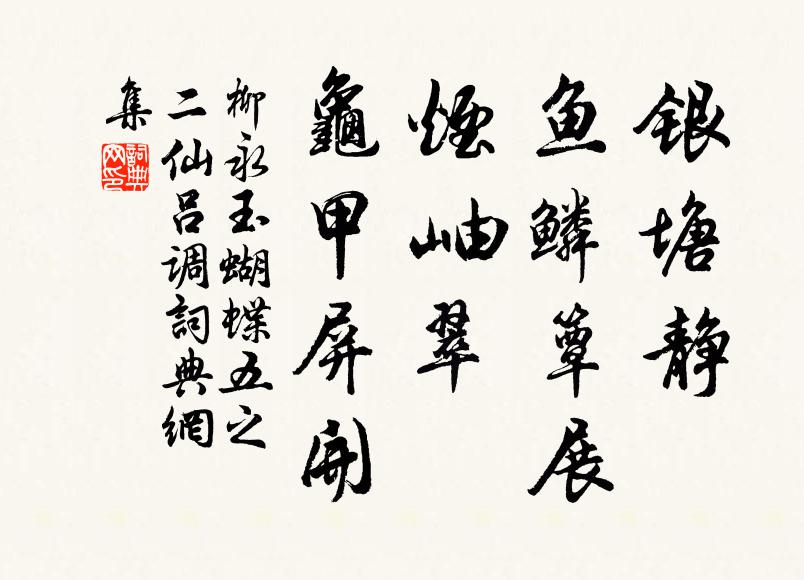 银塘静
鱼鳞簟展
烟岫翠
龜甲屏開
柳永玉蝴蝶五之
二仙吕调詞典網
集
詞典
网印